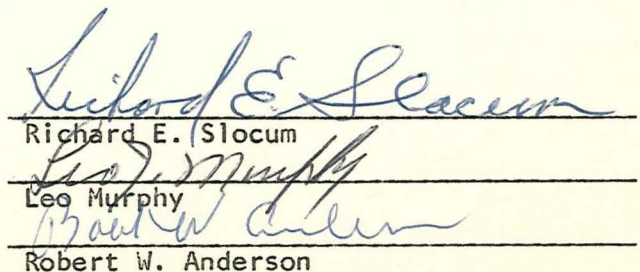 Richard E. Slocum
Richard E. Slocum
Leo J. Murphy
Leo Murphy
Robt W Anderson
Robert W. Anderson